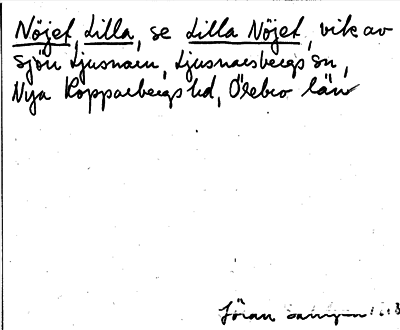 Nöjet, Lilla, se Lilla Nöjet, vik av
sjön Ljusnaren, Ljusnarsbergs sn,
Nya Kopparbergs hd, Örebro län
Jöran